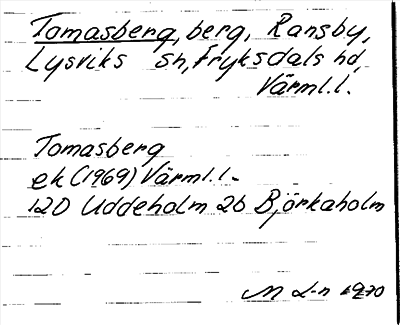 Tomasberg, berg, Ransby,
Lysviks sn, Fryksdals hd,
Värml.l.
Tomasberg
ek (1969) Värml.l.
12D Uddeholm 2b Björkaholm
M L-n 1970